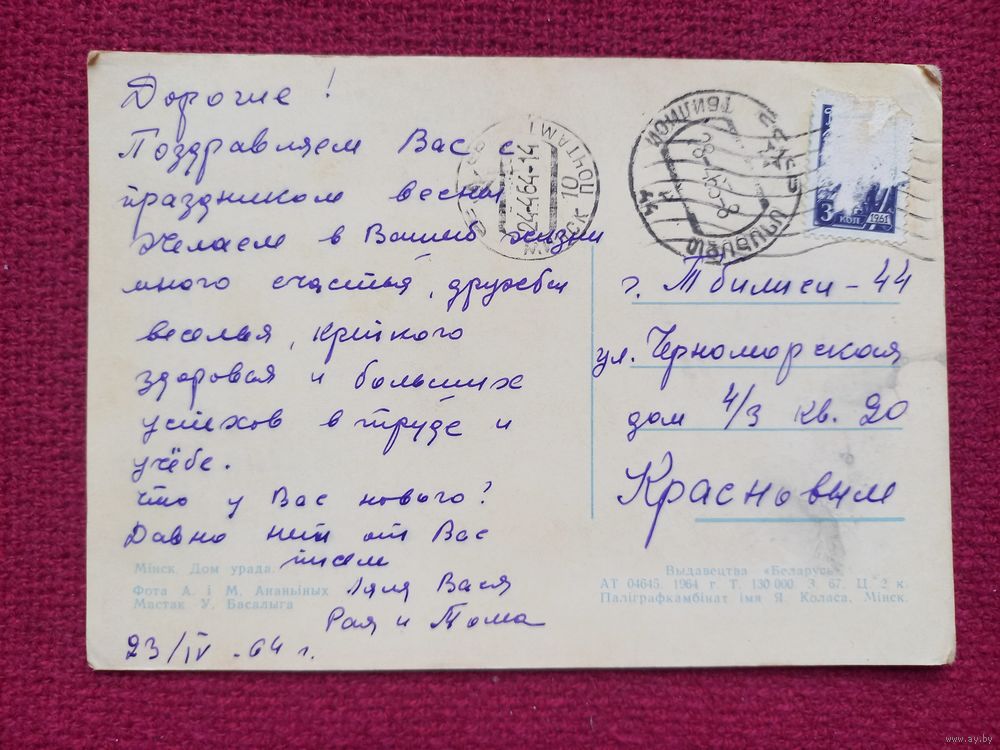 Дорогие!
Поздравляем Вас с
праздником весны
Желаем в Вашей жизни
много счастья, дружбы
веселья, крепкого
здоровья и больших
успехов в труде и
учёбе.
Что у Вас нового?
Давно нет от Вас
писем
Ляля Вася
Рая и Тома
23/IV -64 г.
Мінск. Дом урада.
Фота А. і М. Ананьіных
Мастак У. Басалыга
ПОЧТАМТ
10
24-4-64-14
ТБИЛИСИ
44
3 КОП 1961
г. Тбилиси-44
ул. Черноморская
дом 4/3 кв. 20
Красновым
Выдавецтва «Беларусь»
АТ 04645. 1964 г. Т. 130 000. З. 67. Ц. 2 к.
Паліграфкамбінат імя Я. Коласа. Мінск.
www.ay.by